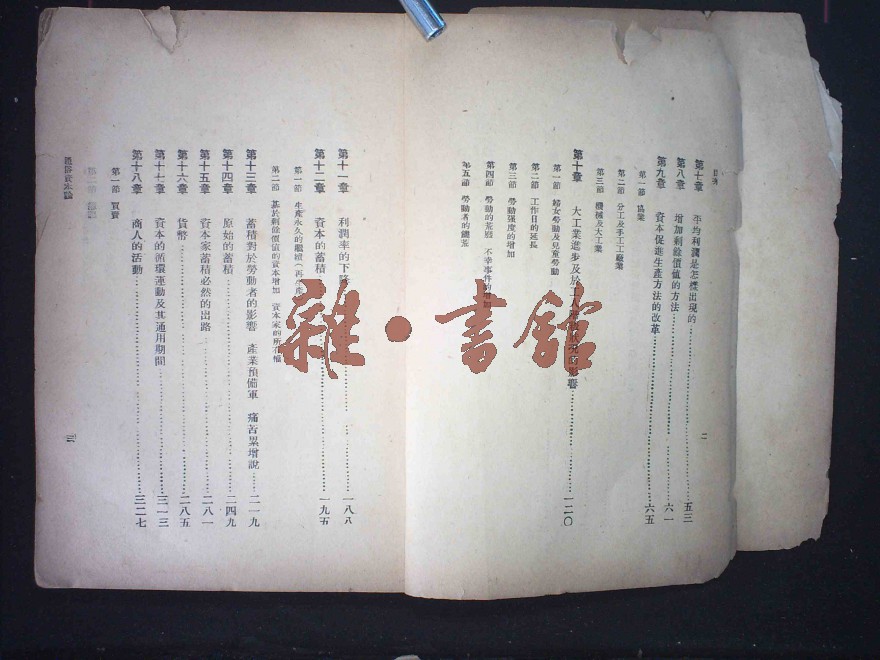 目次
第七章 平均利潤是怎樣出現的……五三
第八章 增加剩餘價值的方法……六一
第九章 資本促進生產方法的改革……六五
第一節 協業
第二節 分工及手工工廠業
第三節 機械及大工業
第十章 大工業進步及於工人 的影響……一二〇
第一節 婦女勞動及兒童勞動
第二節 工作日的延長
第三節 勞動强度的增加
第四節 勞動的荒廢 不幸事件的增加
第五節 勞動者的
二
第十一章 利潤率的下降……一八八
第十二章 資本的蓄積……一九五
第一節 生產永久的繼續(再生產
第二節 基於剩餘價值的資本增加 資本家的所
第十三章 蓄積對於勞動者的影響 產業預備軍 痛苦累增說……二一九
第十四章 原始的蓄積……二四九
第十五章 資本家蓄積必然的出路……二八一
第十六章 貨幣……二八五
第十七章 資本的循環運動及其通用期間……三一三
第十八章 商人的活動……三二七
第一節 買賣
第二節
通俗資本論
三
雜·書館